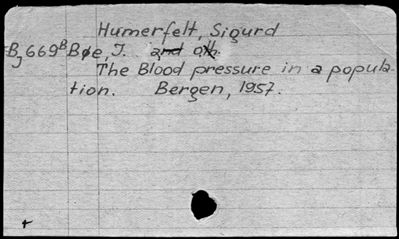 Humerfelt, Sigurd
Bj 669 B Bøe, J. and oth.
The Blood pressure in a popula-
tion. Bergen, 1957.